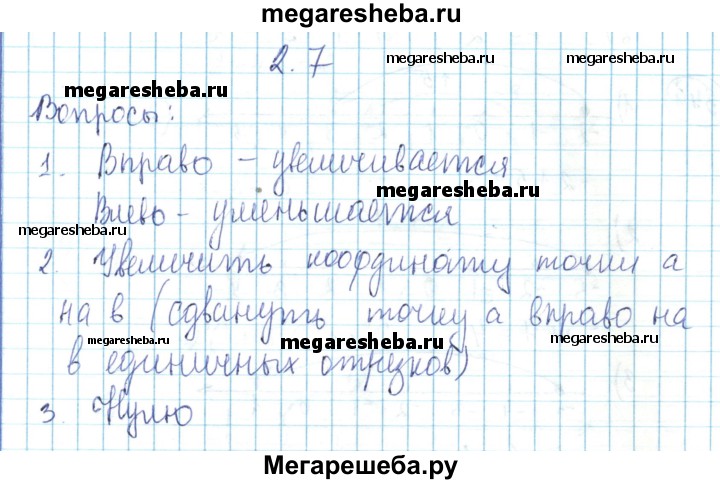 megaresheba.ru
2.7
megaresheba.ru
megaresheba.ru
megaresheba.ru
Вопросы:
1. Вправо – увеличивается
megaresheba.ru
Влево – уменьшается
megaresheba.ru
2. Увеличить координату точки а
на в (сдвинуть точку а вправо на
megaresheba.ru
megaresheba.ru
megaresheba.ru
в единичных отрезков)
3. Нулю
Мегарешеба.ру